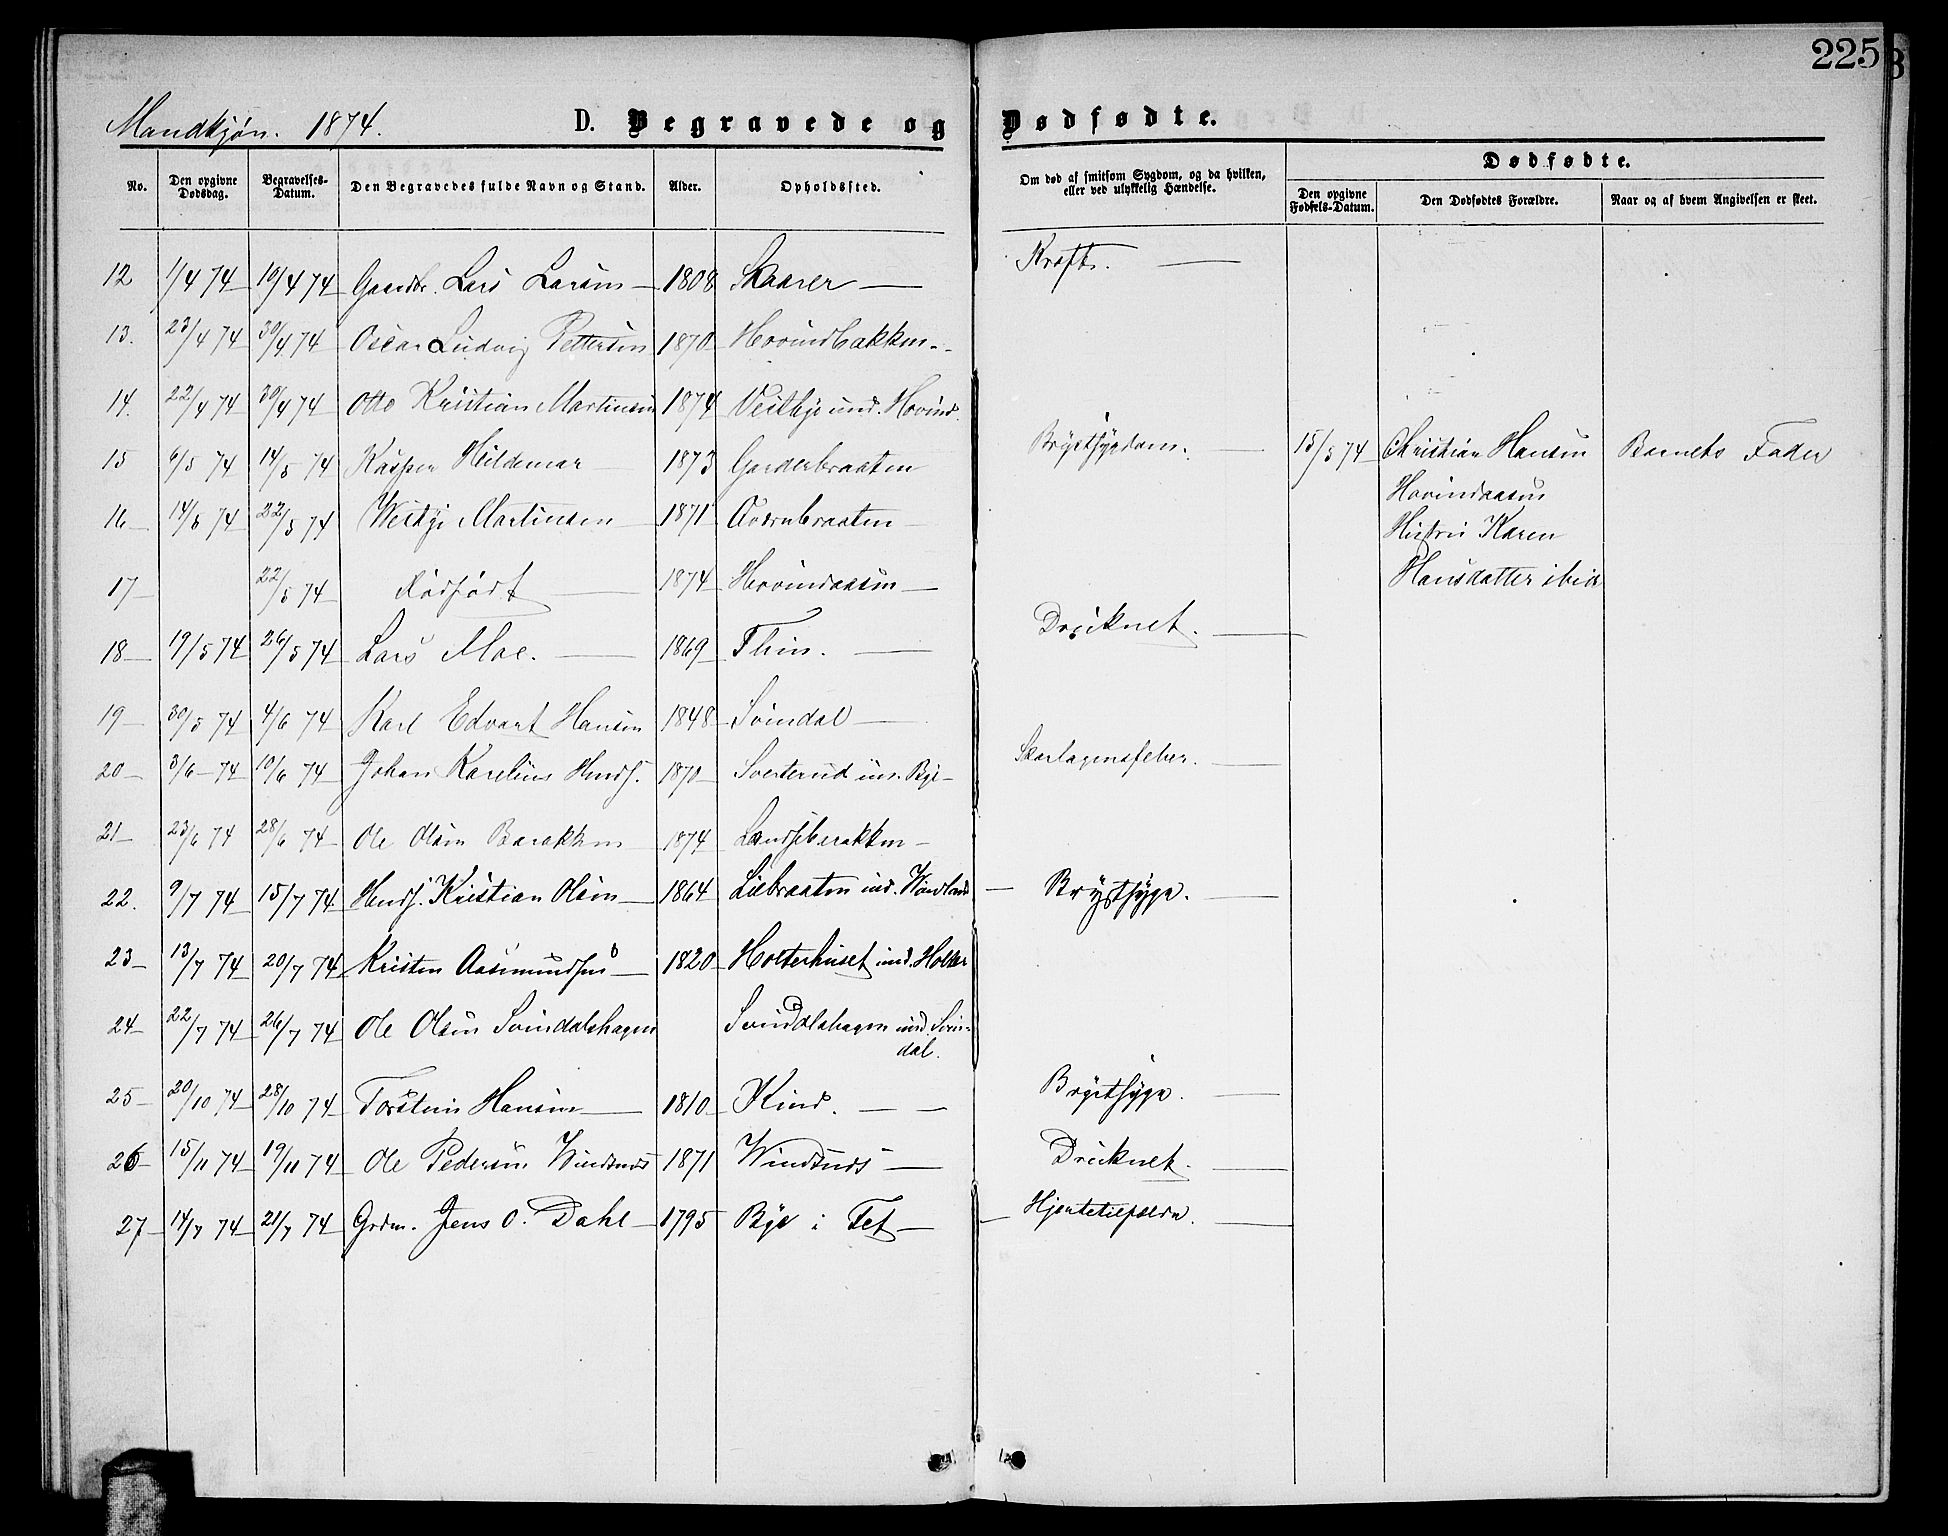 225
Mandkjøn. 1874. D. Begravede og Dødfødte.
Dødfødte.
No. Den opgivne Dødsdag. Begravelses-Datum. Den Begravedes fulde Navn og Stand. Alder. Opholdssted. Om død af smitsom Sygdom, og da hvilken, eller ved ulykkelig Hændelse. Den opgivne Fødsels-Datum. Den Dødfødtes Forældre. Naar og af hvem Angivelsen er skeet.
12 1/4 74 10/4 74 Gaardbr. Lars Larsen 1808 Skaarer Kræft.
13. 23/4 74 30/4 74 Oscar Ludvig Pettersen 1870 Hovindbakken
14. 22/4 74 30/4 74 Otto Kristian Martinsen 1874 Vestbye und. Hovind.
15 6/5 74 14/5 74 Kasper Hildemar 1873 Garderbraaten Brystsygdom. 15/5 74 Christian Hansen Barnets Fader
Hovindaasen
16 14/5 74 22/5 74 Martinsen 1871 Hustru Karen
17 22/5 74 Dødfødt 1874 Hovindaasen Hansdatter ibid
18 19/5 74 26/5 74 Lars Moe. 1869 Thin. Druknet.
19 30/5 74 4/6 74 Karl Edvart Hansen 1848 Svindal
20 3/6 74 10/6 74 Johan Karelius Hmdf. 1870 Sverterud un. Bye Skarlagensfeber.
21 23/6 74 28/6 74 Ole Olsen Barakken 1874 Landfbarakken
22. 9/7 74 15/7 74 Hmdf. Kristian Olsen 1864 Liebraaten ind. Brystsyge.
23 13/7 74 20/7 74 Kristen Aasmundsen 1820 Holterhuset ind. Holter
24 22/7 74 26/7 74 Ole Olsen Svindalshagen Svindalshagen ind. Svin-
dal.
25 20/10 74 28/10 74 Torsten Hansen 1810 Kind. Brystsyge.
26 15/11 74 19/11 74 Ole Pedersen Windsnes 1871 Windsnes Druknet.
27 14/7 74 21/7 74 Grdm. Jens O. Dahl 1795 Bye i Fet Hjertetilfælde.